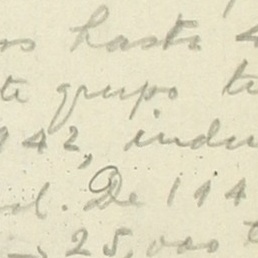 os hasta 4
te grupo te
942, indu
al. De 194
25,000 t